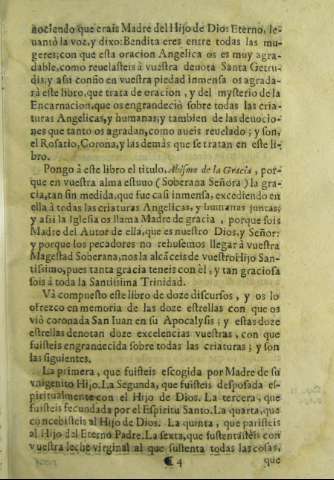 nociendo que erais Madre del Hijo de Dios Eterno, le-
uantò la voz, y dixo: Bendita eres entre todas las mu-
geres; con que esta oracion Angelica os es muy agra-
dable, como reuelasteis à vuestra deuota Santa Getru-
dis, y assi confio en vuestra piedad inmensa os agrada-
rà este libro, que trata de oracion, y del mysterio de la
Encarnacion, que os engrandeciò sobre todas las cria-
turas Angelicas, y humanas; y tambien de las deuocio-
nes que tanto os agradan, como aueis reuelado; y son,
el Rosario, Corona, y las demàs que se tratan en este li-
bro.
Pongo à este libro el titulo, Abismo de la Gracia, por-
que en vuestra alma estuuo (Soberana Señora) la gra-
cia, tan sin medida, que fue casi inmensa, excediendo en
ella à todas las criaturas Angelicas, y humanas juntas;
y assi la Iglesia os llama Madre de gracia, porque sois
Madre del Autor de ella, que es nuestro Dios, y Señor:
y porque los pecadores no rehusemos llegar à vuestra
Magestad Soberana, nos la alcãceis de vuestro Hijo San-
tissimo, pues tanta gracia teneis con èl, y tan graciosa
sois à toda la Santissima Trinidad.
Và compuesto este libro de doze discursos, y os lo
ofrezco en memoria de las doze estrellas con que os
viò coronada San Iuan en su Apocalysis; y estas doze
estrellas denotan doze excelencias vuestras, con que
fuisteis engrandecida sobre todas las criaturas; y son
las siguientes.
La primera, que fuisteis escogida por Madre de su
vnigenito Hijo. La Segunda, que fuisteis desposada es-
piritualmente con el Hijo de Dios. La tercera, que
fuisteis fecundada por el Espiritu Santo. La quarta, que
concebisteis al Hijo de Dios. La quinta, que paristeis
al Hijo del Eterno Padre. La sexta, que sustentasteis con
vuestra leche virginal al que sustenta todas las cosas,
4 que